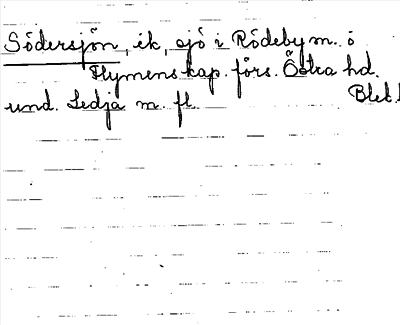 Södersjön, ek, sjö i Rödeby m. o
Flymens kap. förs. Östra hd.
und. Ledja m. fl. Blek.